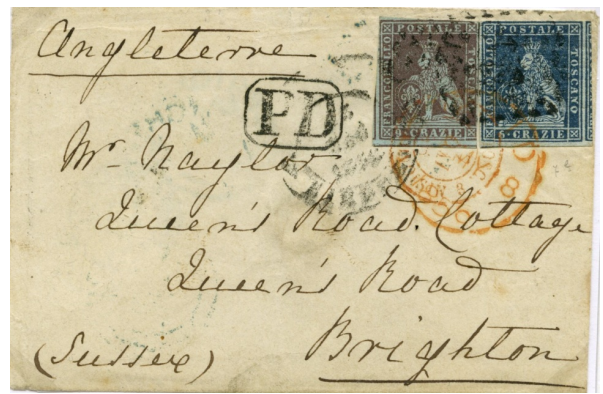 Angleterre
FRANCOBOLLO POSTALE TOSCANO
9 CRAZIE
FRANCOBOLLO POSTALE TOSCANO
6 CRAZIE
PD
Mr. Naylor
Queen's Road Cottage
Queen's Road
Brighton
(Sussex)